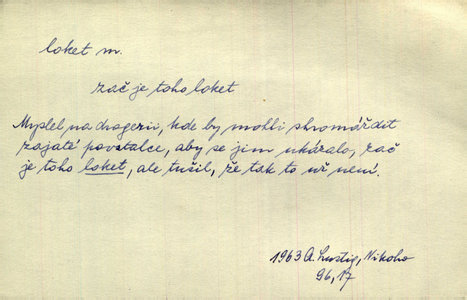 loket m.
zač je toho loket
Myslel na drogerii, kde by mohli shromáždit
zajaté povstalce, aby se jim ukázalo, zač
je toho loket, ale tušil, že tak to už není.
1963 A. Lustig, Nikoho
96, 17